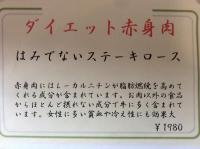 ダイエット赤身肉
はみでないステーキロース
赤身肉にはL-カルニチンが脂肪燃焼を高めて
くれる成分が含まれています。お肉以外の食品
からほとんど摂れない成分で牛に多く含まれて
います。女性に多い貧血や冷え性にも効果大
¥1980